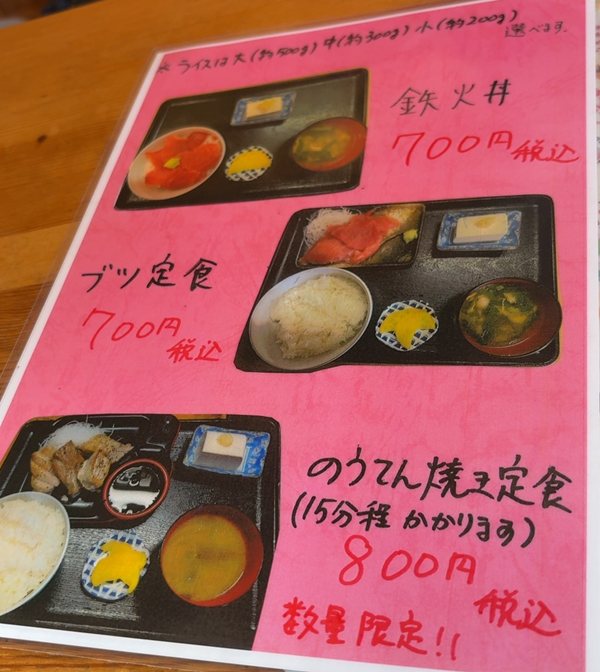 ※ライスは大(約500g)中(約300g)小(約200g)
選べます。
鉄火丼
700円税込
ブツ定食
700円
税込
のうてん焼き定食
(15分程かかります)
800円
税込
数量限定!!